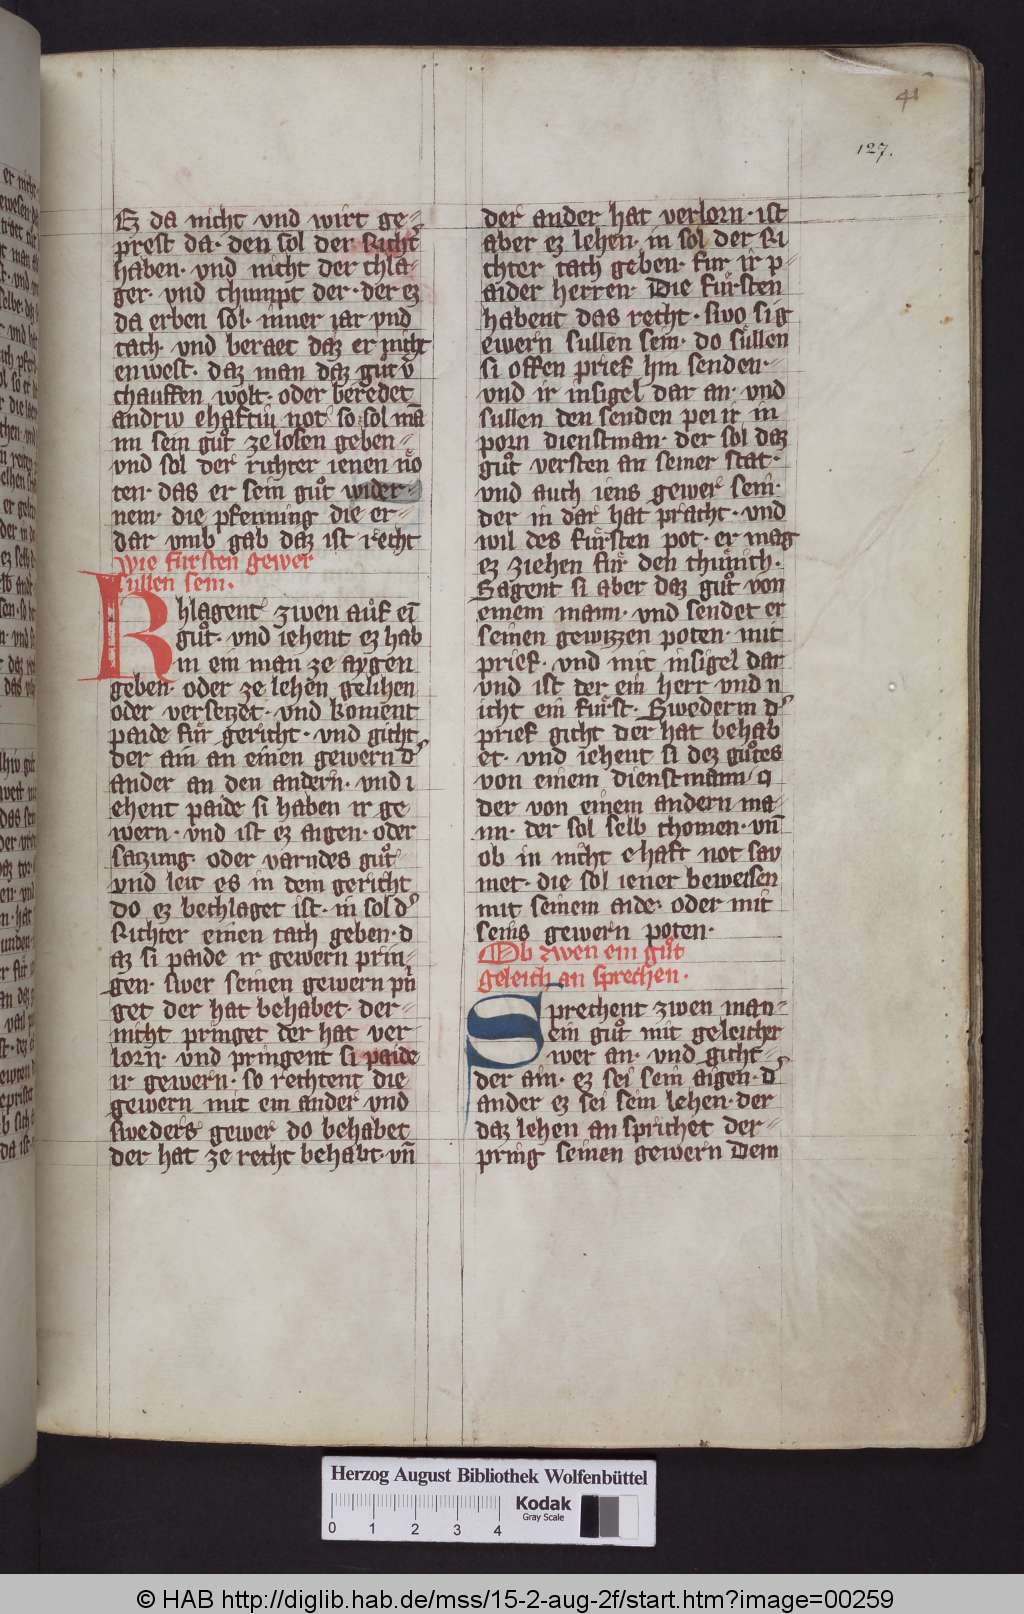 41
127.
Ez da nicht vnd wirt ge-
prest da· den sol der Richt͛
haben· vnd nicht der chla-
ger· vnd chumpt der· der ez
da erben sol· inner iar vnd
tach· vnd beraet daz er nicht
enwest· daz man daz guͦt v̄
chauffen wolt· oder beredet
andrw ehaftiu not so sol mā
im sein guͦt ze losen geben-
vnd sol der richter ienen noͤ
ten· das er sein guͦt wider·
nem· die pfenning die er-
dar vmb gab daz ist recht
wie fürsten gewer
sullen sein·
Khlagent zwen auͤf ei̅
guͦt· vnd iehent ez hab
in ein man ze aygen
geben· oder ze lehen gelihen
oder versetzet· vnd koment
paide fuͤr gericht· vnd gicht
der ain an einen gewern d͛
ander an den andern· vnd i
ehent paide si haben ir ge
wern· vnd ist ez aigen· oder
satzung· oder varndes guͦt
vnd leit es in dem gericht
do ez bechlaget ist· in sol d͛
Richter einen tach geben· d
az si paide ir gewern prin-
gen· swer seinen gewern pri̅
get der hat behabet· der-
nicht pringet der hat ver-
lorn· vnd pringent si paide
ir gewern· so rechtent die
gewern mit ein ander vnd
sweders gewer do behabet
der hat ze recht behabt· vn̄
der ander hat verlorn· ist
aber ez lehen· in sol der Ri
chter tach geben· fur ir p-
aider herren· Die fuͤrsten
habent das recht· swo sig
ewern sullen sein· do süllen
si offen prief hin senden·
vnd ir insigel dar an· vnd
sullen den senden pei ir in
porn dienstman· der sol daz
guͦt versten an seiner stat·
vnd auch iens gewer sein·
der in dar hat pracht· vnd
wil des fuͤrsten pot· er mag
ez ziehen fuͤr den chuͤnich·
Sagent si aber daz guͦt von
einem mann· vnd sendet er
seinen gewizzen poten· mit
prief· vnd mit insigel dar
vnd ist der ein herr vnd n
icht ein fuͤrst· Swederm d͛
prief gicht der hat behab
et· vnd iehent si dez guͦtes
von einem dienstmann·
der von einem andern ma-
nn· der sol selb chomen· vn̄
ob in nicht ehaft not sav
met· die sol iener beweisen
mit seinem aide· oder mit
seins gewern poten·
Ob zwen ein guͦt
geleich an sprechen·
Sprechent zwen man-
ein guͦt mit geleicher
wer an· vnd gicht-
der ain· ez sei sein aigen· d͛
ander ez sei sein lehen· der
daz lehen an sprichet der-
pring seinen gewern Dem
Herzog August Bibliothek Wolfenbüttel
0 1 2 3 4
Kodak
Gray Scale
© HAB http://diglib.hab.de/mss/15-2-aug-2f/start.htm?image=00259